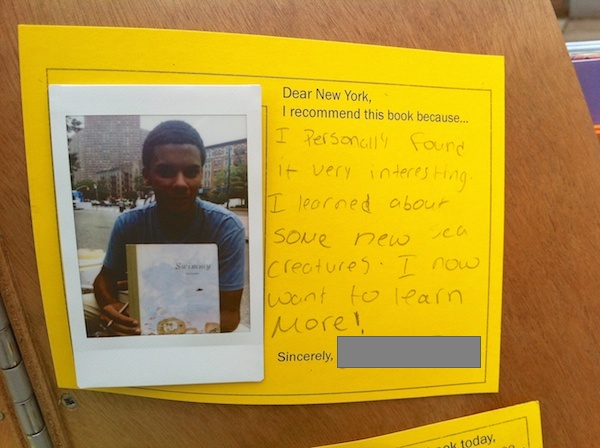 Dear New York,
I recommend this book because...
I Personally found
it very interesting.
I learned about
some new sea
creatures. I now
want to learn
More!
Sincerely,
Swimmy
ok today,